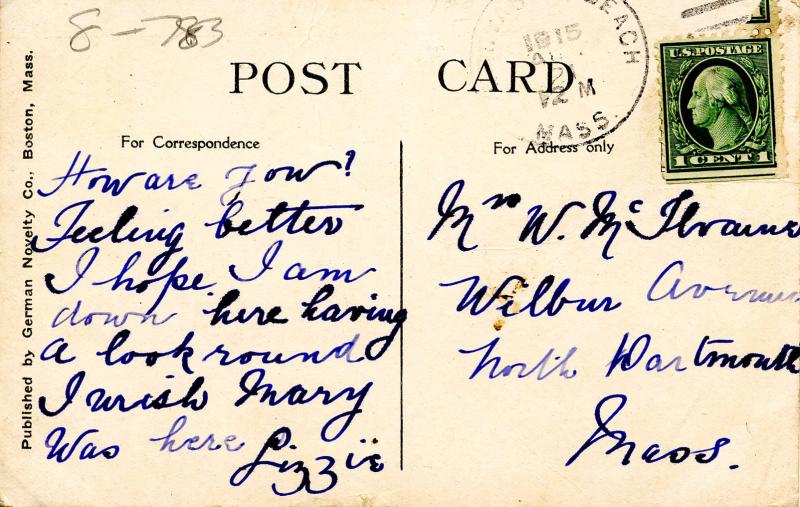 8-783
POST CARD
Published by German Novelty Co., Boston, Mass.
For Correspondence
How are you?
Feeling better
I hope. I am
down here having
a look round
I wish Mary
Was here
Lizzie
BEACH
1915
12 M
MASS.
U.S. POSTAGE
1 CENT 1
For Address only
Mrs W. McIlvaine
Wilbur Avenue
North Dartmouth
Mass.